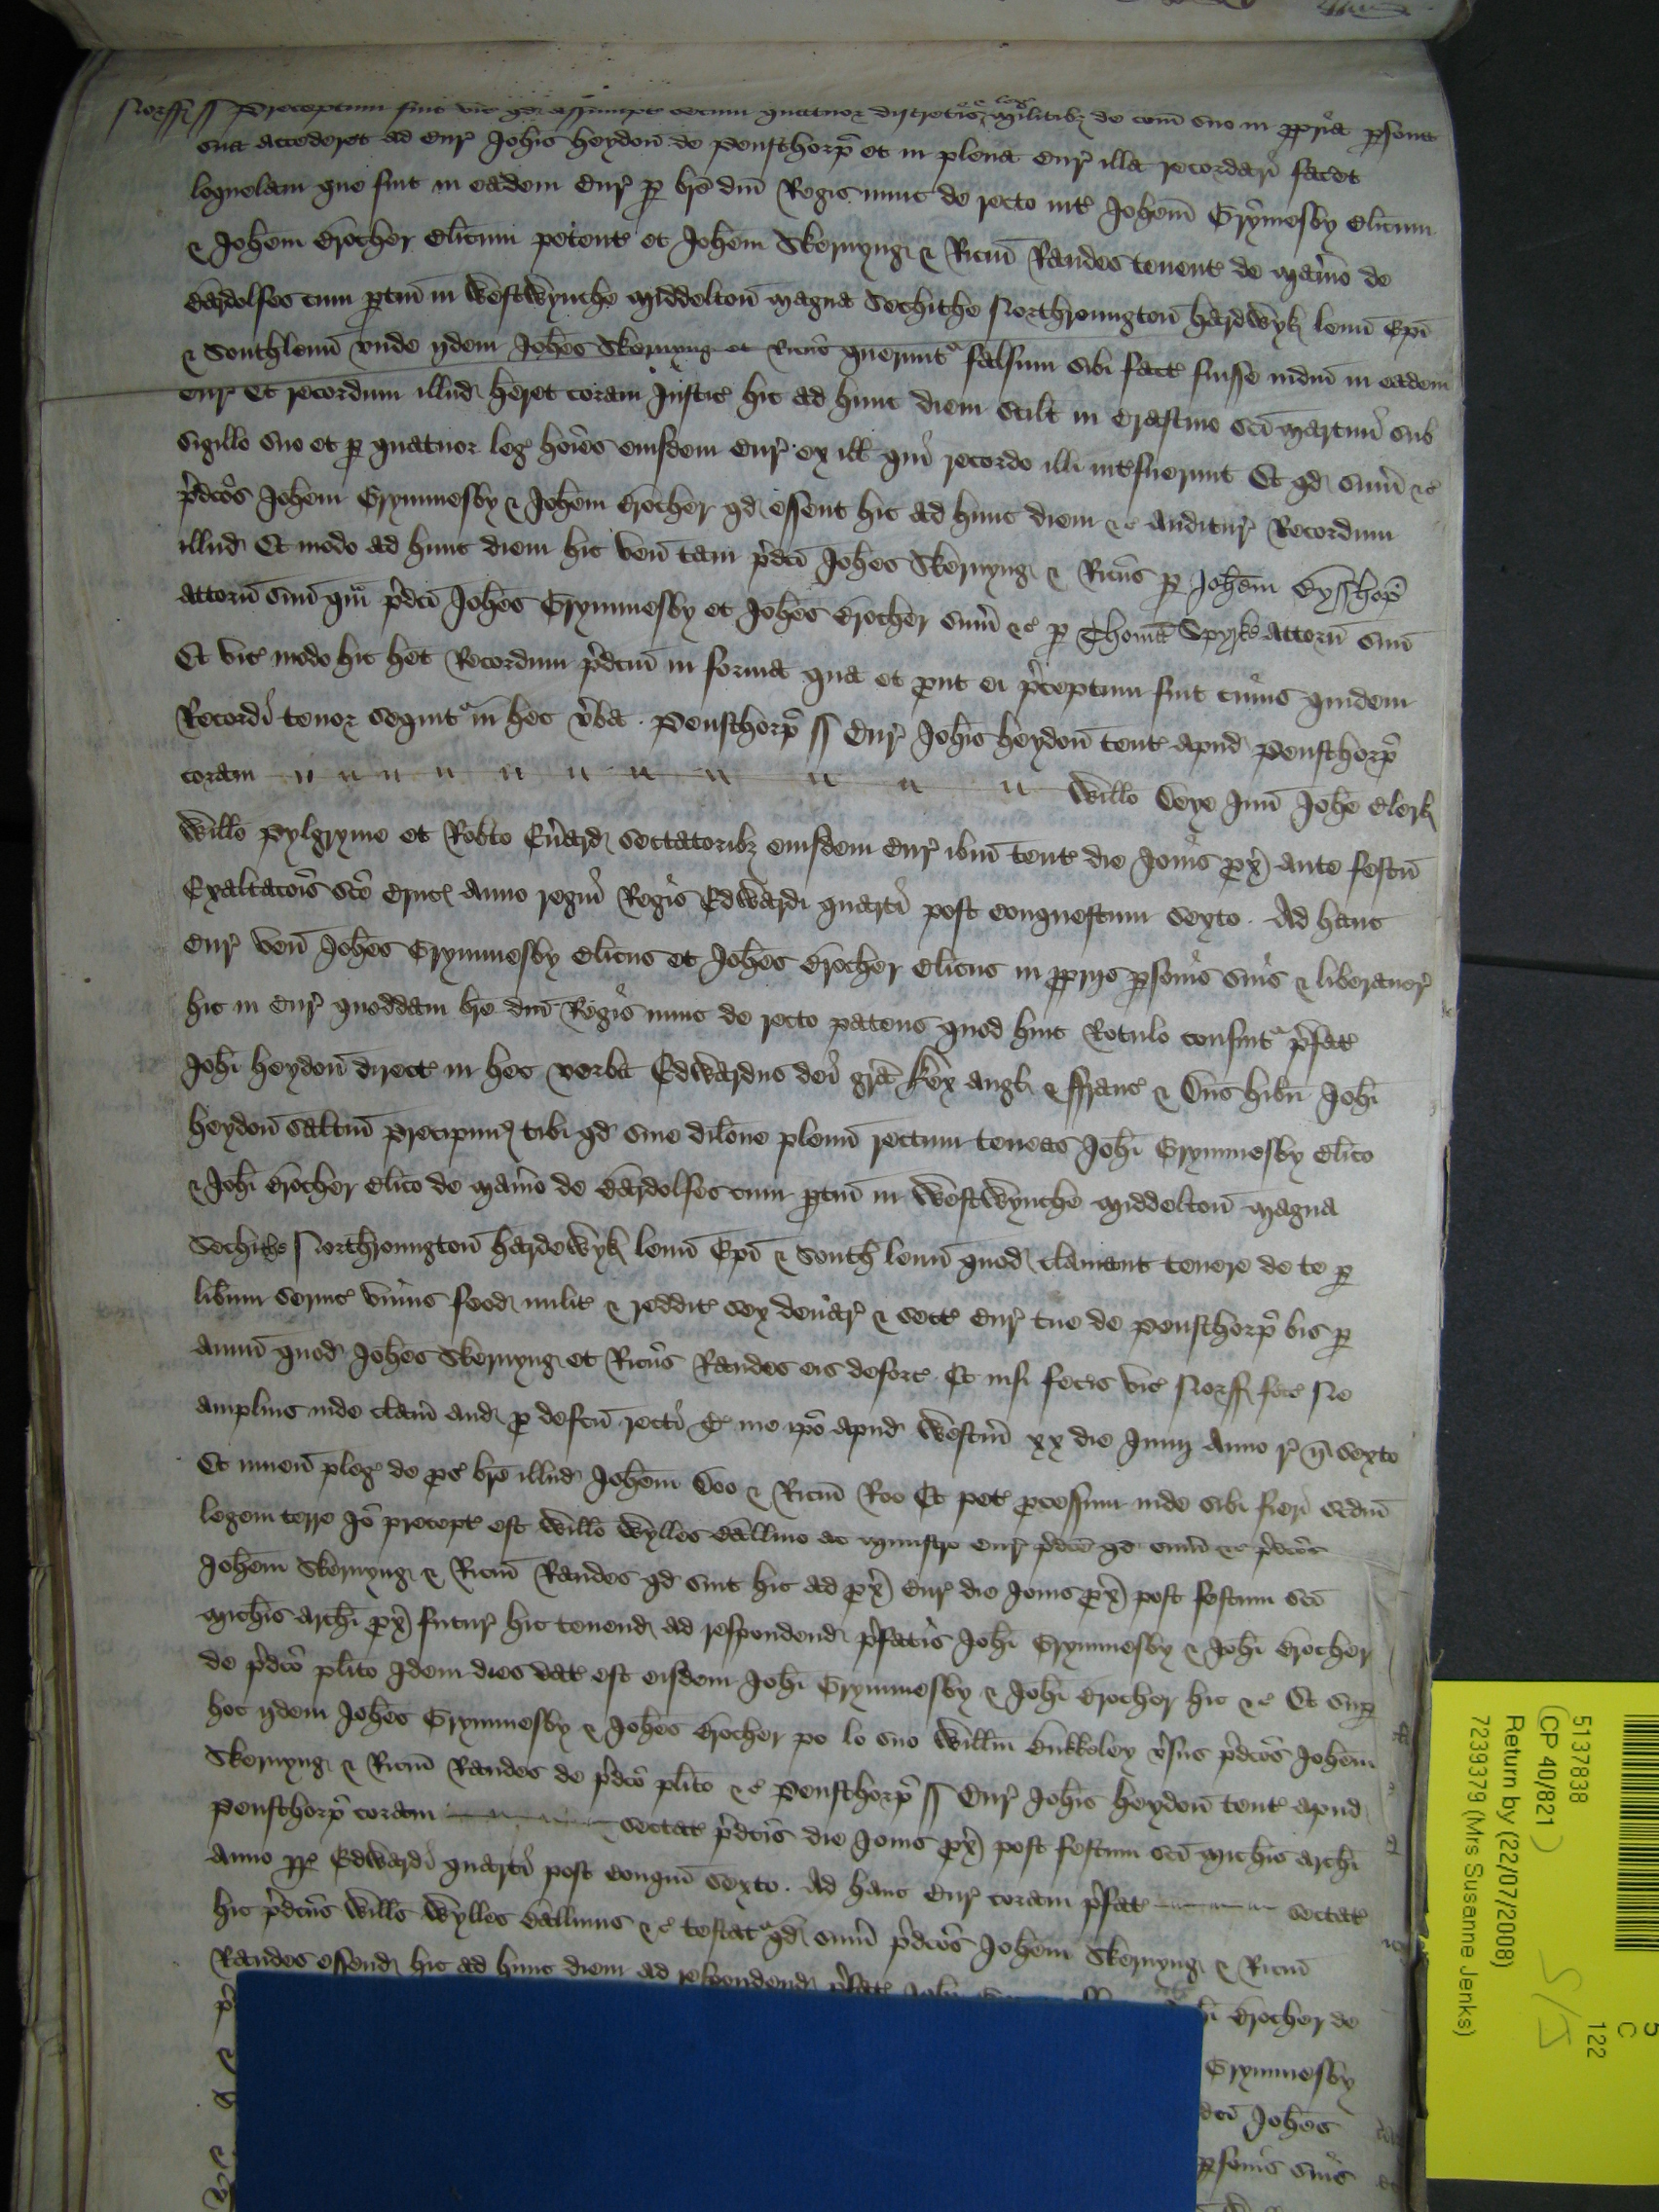 Norff ss Preceptum fuit vic qd assumpt secum quatuor discretis militibȝ de com suo in ppria psona
sua accederet ad Cur Johis Heydon de Pensthorp et in plena Cur illa recordari facet
loquelam que fuit in eadem Cur p bre dni Regis nunc de recto int Johem Grymesby Clicum
& Johem Crocher Clicum petent et Johem Skernyng & Ricm Randes tenent de Man'io de
Bardolfes cum ptin in Westwynche Middelton magna Sechithe Northrongton Hardwyk Lenn Epi
& Southlenn unde ijdem Johes Skernyng et Ricus querunt falsum sibi fact fuisse indm in eadem
Cur Et recordum illud heret coram Justic hic ad hunc diem Scilt in Crastino Sci Martini sub
sigillo suo et p quatuor leg hoies eiusdem Cur ex ill qui recordo illi intfuerunt Et qd sum &c
pdcos Johem Grymmesby & Johem Crocher qd essent hic ad hunc diem &c auditur Recordum
illud Et modo ad hunc diem hic ven tam pdci Johes Skernyng & Ricus p Johem Bysshop
attorn suu qm pdci Johes Grymmesby et Johes Crocher sum &c p Thoma Spyrk attorn suu
Et vic modo hic het Recordum pdcm in forma qua et put ei pceptum fuit cuius quidem
Recordi tenor sequit in hec vba . Pensthorp ss Cur Johis Heydon tent apud Pensthorp
coram Willo Sexe Jun Johe Clerk
Willo Pylgryme et Robto Eu'ard sectatoribȝ eiusdem Cur ibm tent die Jouis px ante festu
Exaltacois Sce Cruc anno regni Regis Edwardi quarti post conquestum sexto . Ad hanc
Cur ven Johes Grymmesby Clicus et Johes Crocher Clicus in pprijs psonis suis & liberauer
hic in Cur quoddam bre dni Regis nunc de recto patens quod huic Rotulo consuit pfat
Johi Heydon direct in hec verba Edwardus dei gra Rex Angl & Franc & Dns Hibn Johi
Heydon saltm Precipim tibi qd sine dilone plenu rectum teneas Johi Grymmesby Clico
& Johi Crocher Clico de Man'io de Bardolfes cum ptin in Westwynche Middelton magna
Sechithe Northrongton Hardewyk Lenn Epi & South Lenn quod clamant tenere de te p
libum seruic unius feod milit & reddit sex denar & sect Cur tue de Pensthorp bis p
annu quod Johes Skernyng et Ricus Randes eis defore Et nisi fecis vic Norff fac Ne
amplius inde clam aud p defcu recti T me ipo apud Westm xx die Junij Anno r n sexto
Et inuen pleg de ps bre illud Johem Doo & Ricm Roo Et pet pcessum inde sibi fieri scdm
legem terre Jo precept est Willo Wylles Balliuo ac ministro Cur pdce qd sum &c pdcos
Johem Skernyng & Ricm Randes qd sint hic ad px Cur die Jouis px post festum Sci
Michis Archi px futur hic tenend ad respondend pfatis Johi Grymmesby & Johi Crocher
de pdco plito Idem dies dat est eisdem Johi Grymmesby & Johi Crocher hic &c Et sup
hoc ijdem Johes Grymmesby & Johes Crocher po lo suo Willm Bukkeley vsus pdcos Johem
Skernyng & Ricm Randes de pdco plito &c Pensthorp ss Cur Johis Heydon tent apud
Pensthorp coram sectat pdcis die Jouis px post festum Sci Michis Archi
Anno rr Edwardi quarti post conqum sexto . Ad hanc Cur coram pfat sectat
hic pdcus Wills Wylles Balliuus &c testat qd sum pdcos Johem Skernyng & Ricm
Randes essend hic ad hunc diem ad respondend pfat
Crocher de
Grymmesby
dci Johes
psonis suis
5137838
(CP 40/821)
Return by (22/07/2008)
7239379 (Mrs Susanne Jenks)
S/J
5
C
122